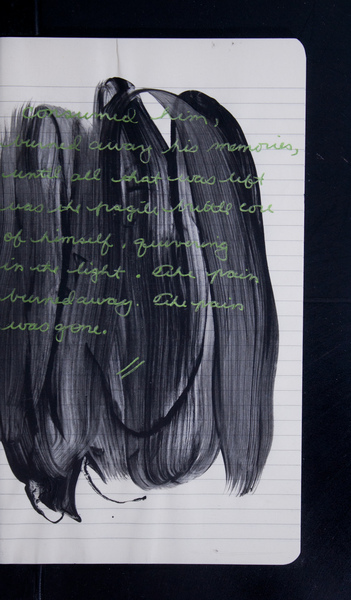 consumed him,
burned away his memories,
until all that was left
was the fragile brittle core
of himself, quivering
in the light. The pain
burned away. The pain
was gone.
//